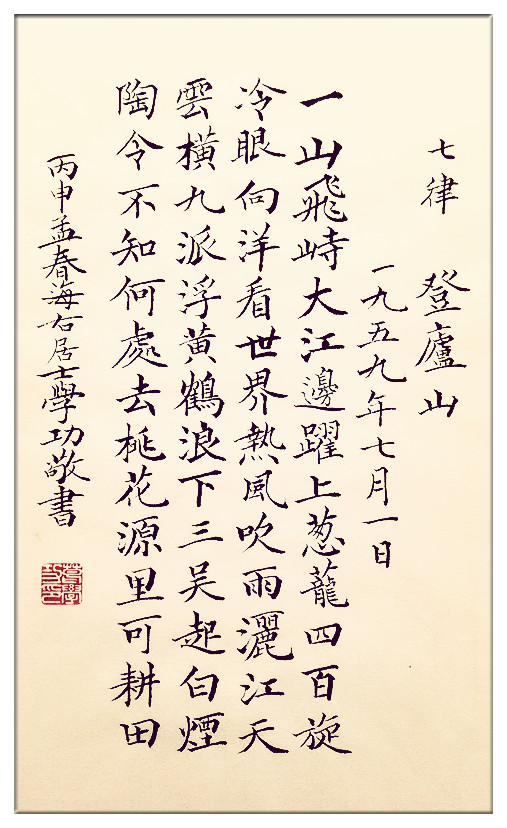 七律 登廬山
一九五九年七月一日
一山飛峙大江邊躍上葱蘢四百旋
冷眼向洋看世界熱風吹雨灑江天
雲橫九派浮黄鶴浪下三吴起白煙
陶令不知何處去桃花源里可耕田
丙申孟春海右居士學功敬書